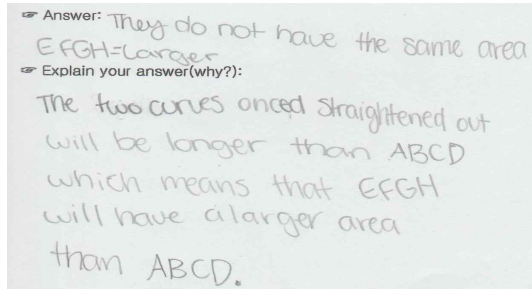 ☞ Answer: They do not have the same area
EFGH=Larger
☞ Explain your answer(why?):
The two curves onced straightened out
will be longer than ABCD
which means that EFGH
will have a larger area
than ABCD.